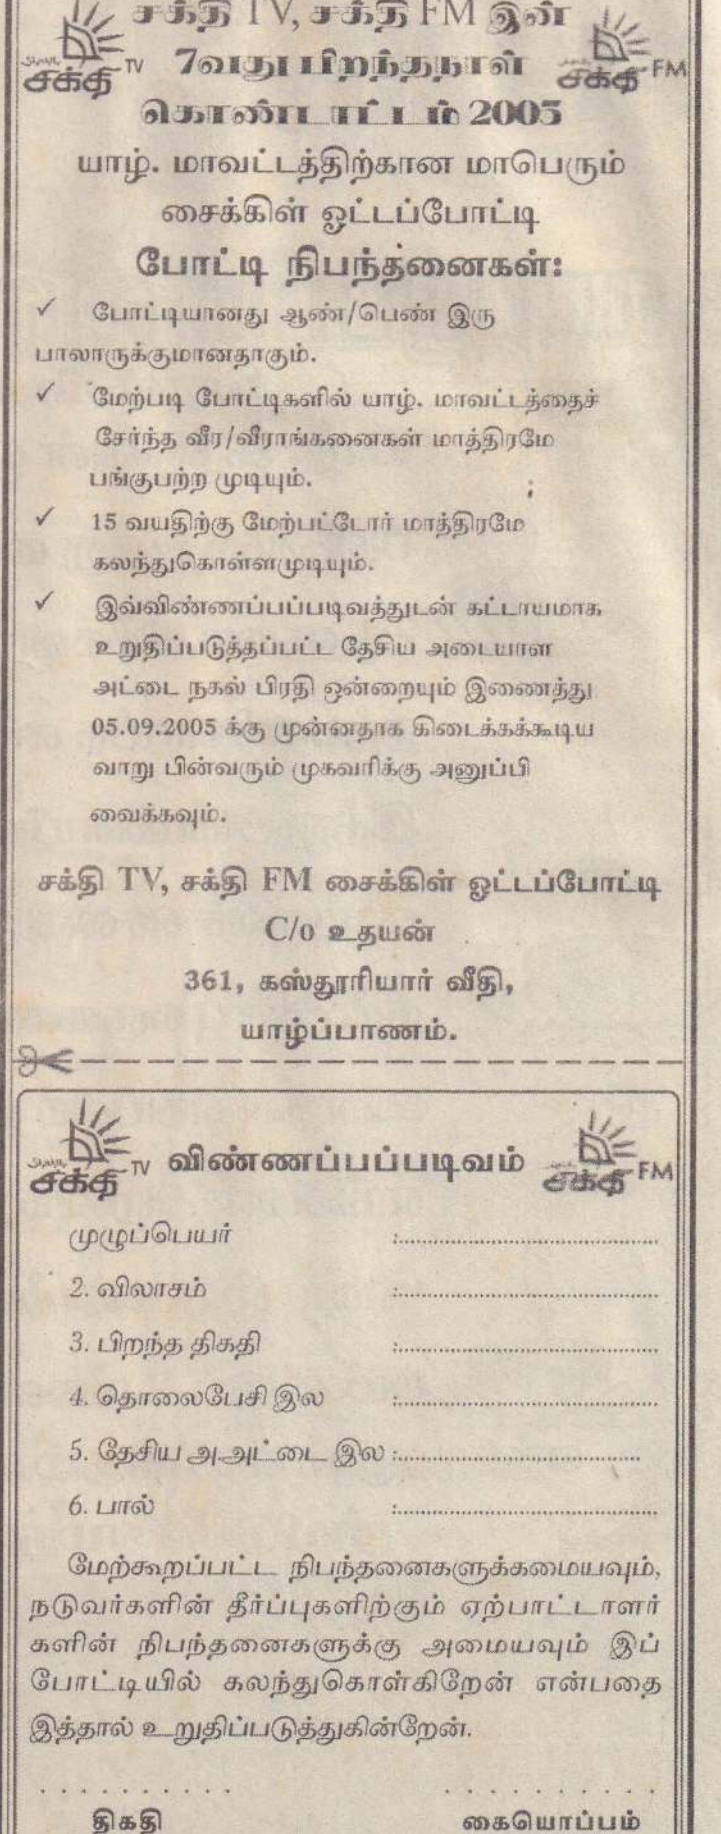 சக்தி TV, சக்தி FM இன்
சக்தி TV
7வது பிறந்தநாள்
சக்தி FM
கொண்டாட்டம் 2005
யாழ். மாவட்டத்திற்கான மாபெரும்
சைக்கிள் ஓட்டப்போட்டி
போட்டி நிபந்தனைகள்:
✓ போட்டியானது ஆண்/பெண் இரு
பாலாருக்குமானதாகும்.
✓ மேற்படி போட்டிகளில் யாழ். மாவட்டத்தைச்
சேர்ந்த வீர/வீராங்கனைகள் மாத்திரமே
பங்குபற்ற முடியும்.
✓ 15 வயதிற்கு மேற்பட்டோர் மாத்திரமே
கலந்துகொள்ளமுடியும்.
✓ இவ்விண்ணப்பப்படிவத்துடன் கட்டாயமாக
உறுதிப்படுத்தப்பட்ட தேசிய அடையாள
அட்டை நகல் பிரதி ஒன்றையும் இணைத்து
05.09.2005 க்கு முன்னதாக கிடைக்கக்கூடிய
வாறு பின்வரும் முகவரிக்கு அனுப்பி
வைக்கவும்.
சக்தி TV, சக்தி FM சைக்கிள் ஓட்டப்போட்டி
C/o உதயன்
361, கஸ்தூரியார் வீதி,
யாழ்ப்பாணம்.
சக்தி TV
விண்ணப்பப்படிவம்
சக்தி FM
முழுப்பெயர் :..............................
2. விலாசம் :..............................
3. பிறந்த திகதி :..............................
4. தொலைபேசி இல :..............................
5. தேசிய அ.அட்டை இல :..............................
6. பால் :..............................
மேற்கூறப்பட்ட நிபந்தனைகளுக்கமையவும்,
நடுவர்களின் தீர்ப்புகளிற்கும் ஏற்பாட்டாளர்
களின் நிபந்தனைகளுக்கு அமையவும் இப்
போட்டியில் கலந்துகொள்கிறேன் என்பதை
இத்தால் உறுதிப்படுத்துகின்றேன்.
. . . . . . . . . . . . . . . . . . . .
திகதி கையொப்பம்